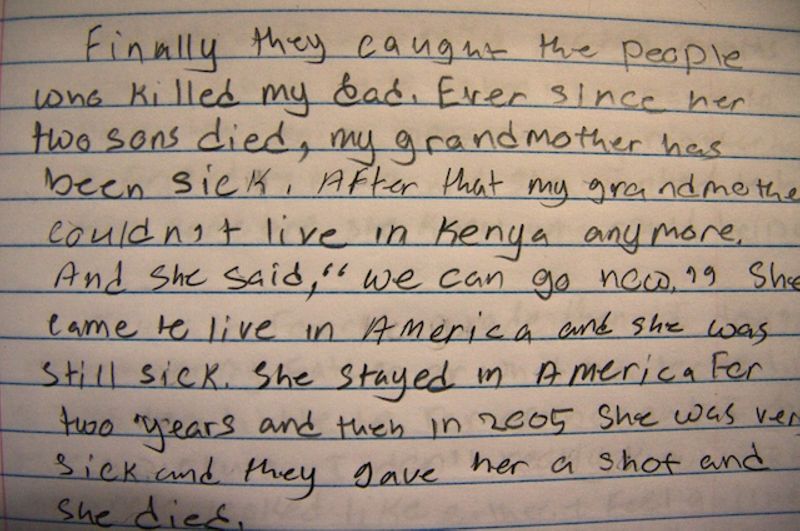 Finally they caught the people
who killed my dad. Ever since her
two sons died, my grandmother has
been sick. After that my grandmothe
couldn't live in Kenya anymore.
And she said, “we can go now.” She
came to live in America and she was
still sick. She stayed in America for
two years and then in 2005 she was ver
sick and they gave her a shot and
she died.